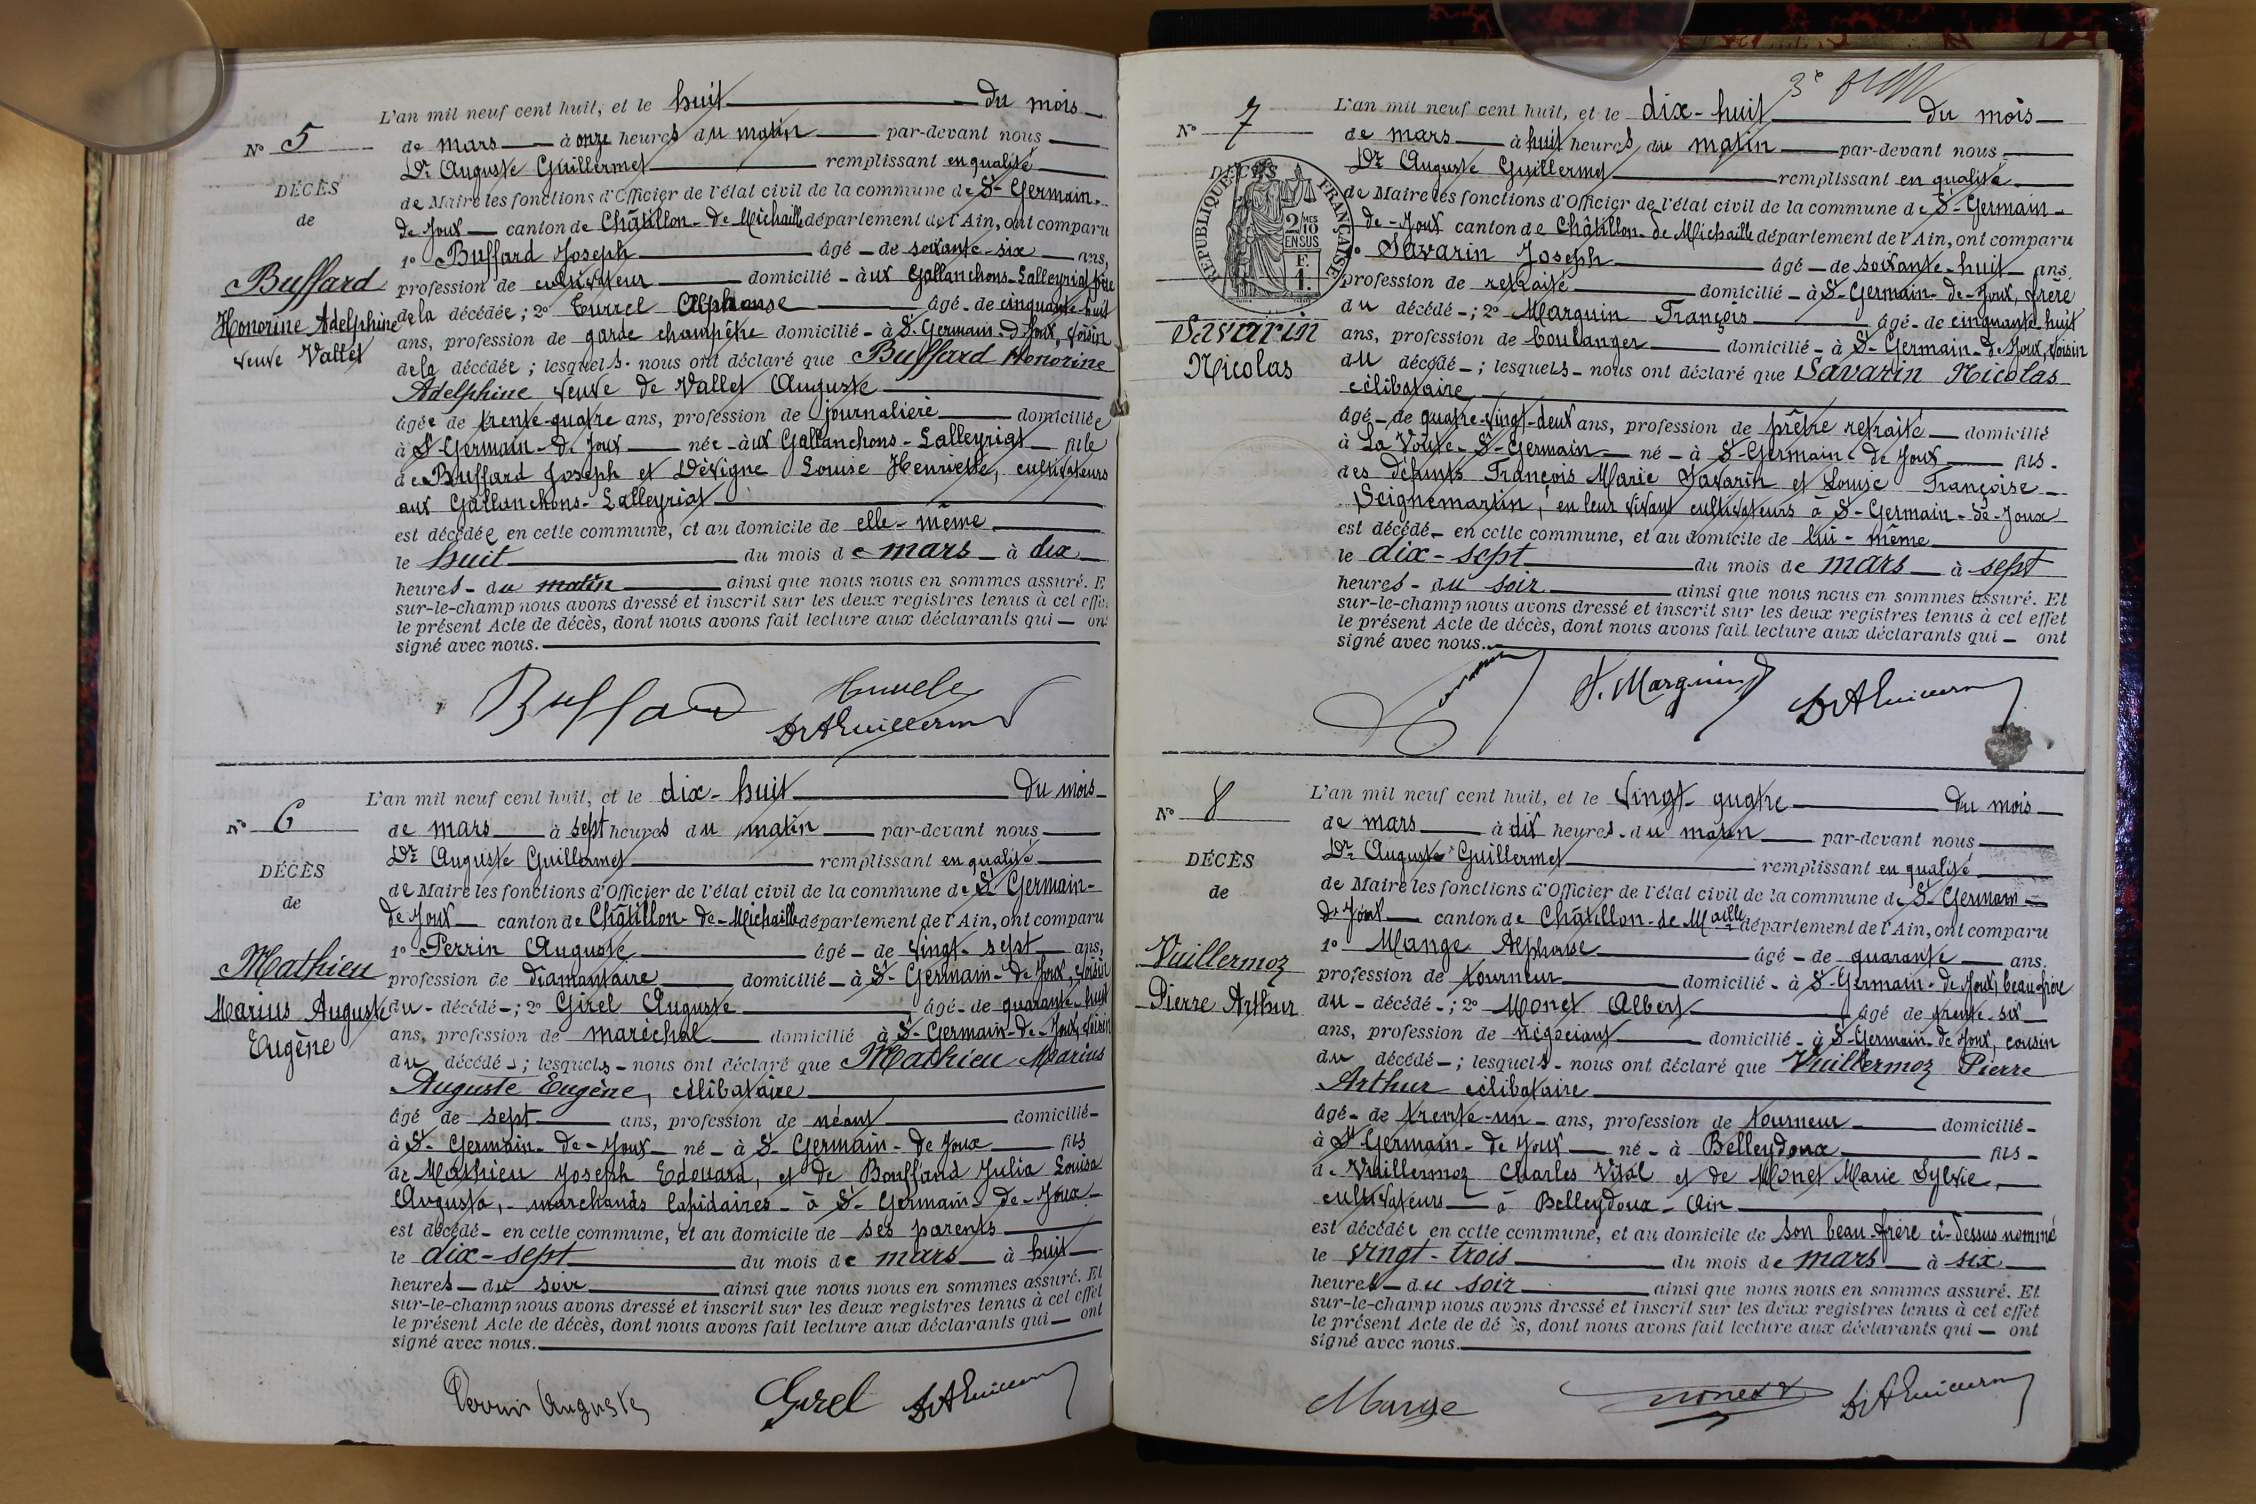 L'an mil neuf cent huit, et le huit du mois
N° 5
de mars à onze heures du matin par-devant nous
Dr Auguste Guillermet remplissant en qualité
DÉCÈS
de Maire les fonctions d'Officier de l'état civil de la commune de St-Germain-
de
de Joux canton de Châtillon-de-Michaille département de l'Ain, ont comparu
1° Buffard Joseph âgé de soixante-six ans,
Buffard
profession de cultivateur domicilié aux Gallanchons-Lalleyriat, père
Honorine Adelphine
de la décédée; 2° Turrel Alphonse âgé de cinquante-huit
veuve Vallet
ans, profession de garde champêtre domicilié à St-Germain-de-Joux, voisin
de la décédée; lesquels nous ont déclaré que Buffard Honorine
Adelphine veuve de Vallet Auguste
âgée de trente-quatre ans, profession de journalière domiciliée
à St-Germain-de-Joux née aux Gallanchons-Lalleyriat fille
de Buffard Joseph et Dévigne Louise Henriette, cultivateurs
aux Gallanchons-Lalleyriat
est décédée en cette commune, et au domicile de elle-même
le huit du mois de mars à dix
heures du matin ainsi que nous nous en sommes assuré. E
sur-le-champ nous avons dressé et inscrit sur les deux registres tenus à cet effe
le présent Acte de décès, dont nous avons fait lecture aux déclarants qui on
signé avec nous.
Buffard
DrAGuillermet
L'an mil neuf cent huit, et le dix-huit du mois
N° 6
de mars à sept heures du matin par-devant nous
Dr Auguste Guillermet remplissant en qualité
DÉCÈS
de Maire les fonctions d'Officier de l'état civil de la commune de St Germain-
de
de Joux canton de Châtillon-de-Michaille département de l'Ain, ont comparu
1° Perrin Auguste âgé de vingt-sept ans,
Mathieu
profession de diamantaire domicilié à St-Germain-de-Joux, voisin
Marius Auguste
du décédé; 2° Girel Auguste âgé de quarante-huit
Eugène
ans, profession de maréchal domicilié à St-Germain-de-Joux, voisin
du décédé; lesquels nous ont déclaré que Mathieu Marius
Auguste Eugène, célibataire
âgé de sept ans, profession de néant domicilié
à St-Germain-de-Joux né à St-Germain-de Joux fils
de Mathieu Joseph Edouard, et de Bouffand Julia Louisa
Augusta, marchands lapidaires à St-Germain-de-Joux
est décédé en cette commune, et au domicile de ses parents
le dix-sept du mois de mars à huit
heures du soir ainsi que nous nous en sommes assuré. Et
sur-le-champ nous avons dressé et inscrit sur les deux registres tenus à cet effet
le présent Acte de décès, dont nous avons fait lecture aux déclarants qui ont
signé avec nous.
Perrin Auguste Girel DrAGuillermet
3e
L'an mil neuf cent huit, et le dix-huit du mois
N° 7
de mars à huit heures du matin par-devant nous
Dr Auguste Guillermet remplissant en qualité
DÉCÈS
RÉPUBLIQUE FRANÇAISE
2/10 MES
EN SUS
F.
1.
de Maire les fonctions d'Officier de l'état civil de la commune de St-Germain-
de-Joux canton de Châtillon-de Michaille département de l'Ain, ont comparu
1° Savarin Joseph âgé de soixante-huit ans,
profession de retraité domicilié à St-Germain-de-Joux, frère
Savarin
du décédé; 2° Marquin François âgé de cinquante-huit
Nicolas
ans, profession de boulanger domicilié à St-Germain-de-Joux, voisin
du décédé; lesquels nous ont déclaré que Savarin Nicolas
célibataire
âgé de quatre-vingt-deux ans, profession de prêtre retraité domicilié
à La Voûte-St-Germain né à St-Germain-de Joux fils
des défunts François Marie Savarin et Louise Françoise
Seignemartin, en leur vivant cultivateurs à St-Germain-de-Joux
est décédé en cette commune, et au domicile de lui-même
le dix-sept du mois de mars à sept
heures du soir ainsi que nous nous en sommes assuré. Et
sur-le-champ nous avons dressé et inscrit sur les deux registres tenus à cet effet
le présent Acte de décès, dont nous avons fait lecture aux déclarants qui ont
signé avec nous.
F. Marquin DrAGuillermet
L'an mil neuf cent huit, et le vingt-quatre du mois
N° 8
de mars à dix heures du matin par-devant nous
Dr Auguste Guillermet remplissant en qualité
DÉCÈS
de Maire les fonctions d'Officier de l'état civil de la commune de St-Germain-
de
de Joux canton de Châtillon-de-Maille département de l'Ain, ont comparu
1° Mange Alphonse âgé de quarante ans,
Vuillermoz
profession de tourneur domicilié à St-Germain-de Joux, beau-frère
Pierre Arthur
du décédé; 2° Monet Albert âgé de trente-six
ans, profession de négociant domicilié à St-Germain-de Joux, cousin
du décédé; lesquels nous ont déclaré que Vuillermoz Pierre
Arthur célibataire
âgé de trente-un ans, profession de tourneur domicilié
à St Germain-de Joux né à Belleydoux fils
de Vuillermoz Charles Vital et de Monet Marie Sylvie,
cultivateurs à Belleydoux-Ain
est décédé en cette commune, et au domicile de son beau-frère ci-dessus nommé
le vingt-trois du mois de mars à six
heures du soir ainsi que nous nous en sommes assuré. Et
sur-le-champ nous avons dressé et inscrit sur les deux registres tenus à cet effet
le présent Acte de dé s, dont nous avons fait lecture aux déclarants qui ont
signé avec nous.
Mange Monet DrAGuillermet